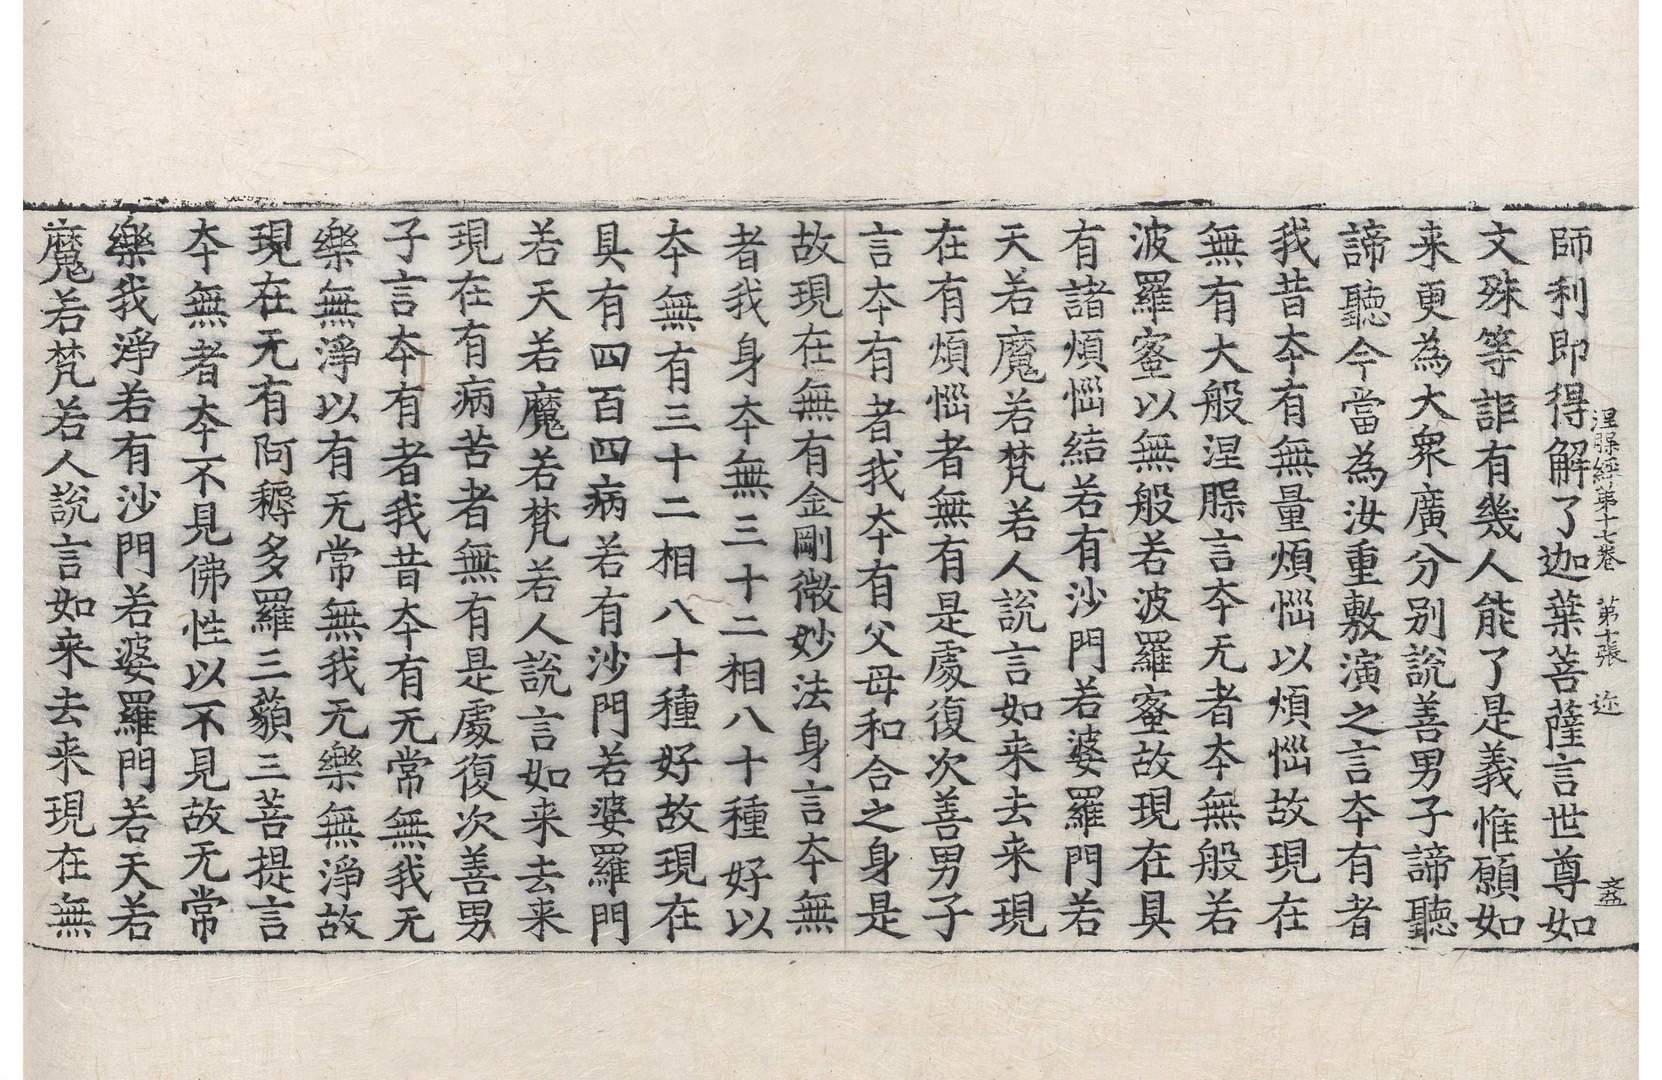 涅槃經第十七卷 第十張 迩
師利即得解了迦葉菩薩言世尊如
文殊等詎有幾人能了是義惟願如
来更為大衆廣分別說善男子諦聽
諦聽今當為汝重敷演之言夲有者
我昔夲有無量煩惱以煩惱故現在
無有大般涅槃言夲无者夲無般若
波羅蜜以無般若波羅蜜故現在具
有諸煩惱結若有沙門若婆羅門若
天若魔若梵若人說言如来去来現
在有煩惱者無有是處復次善男子
言夲有者我夲有父母和合之身是
故現在無有金剛微妙法身言夲無
者我身夲無三十二相八十種好以
夲無有三十二相八十種好故現在
具有四百四病若有沙門若婆羅門
若天若魔若梵若人說言如来去来
現在有病苦者無有是處復次善男
子言夲有者我昔夲有无常無我无
樂無淨以有无常無我无樂無淨故
現在无有阿耨多羅三藐三菩提言
夲無者夲不見佛性以不見故无常
樂我淨若有沙門若婆羅門若天若
魔若梵若人說言如来去来現在無